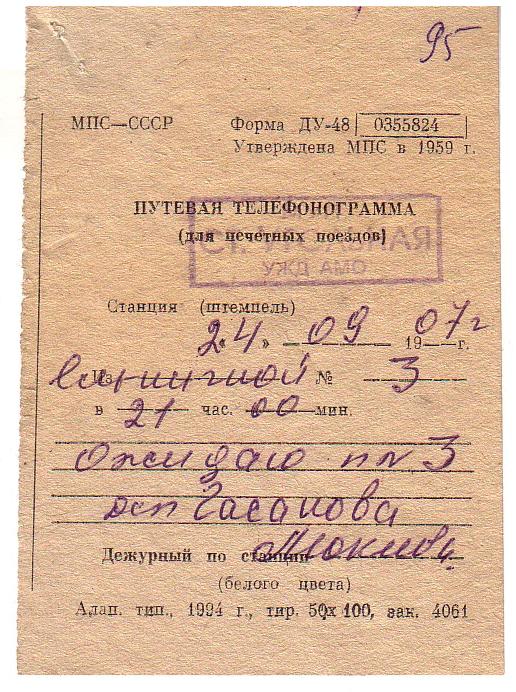 95
МПС—СССР Форма ДУ-48 0355824
Утверждена МПС в 1959 г.
ПУТЕВАЯ ТЕЛЕФОНОГРАММА
(для нечетных поездов)
СТ.
УЖД АМО
Станция (штемпель)
"24" 09 19 07 г г.
Из № 3
в 21 час. 00 мин.
Ожидаю п № 3
дсп Часапова
Дежурный по станции
(белого цвета)
Алап. тип., 1994 г., тир. 50х100, зак. 4061